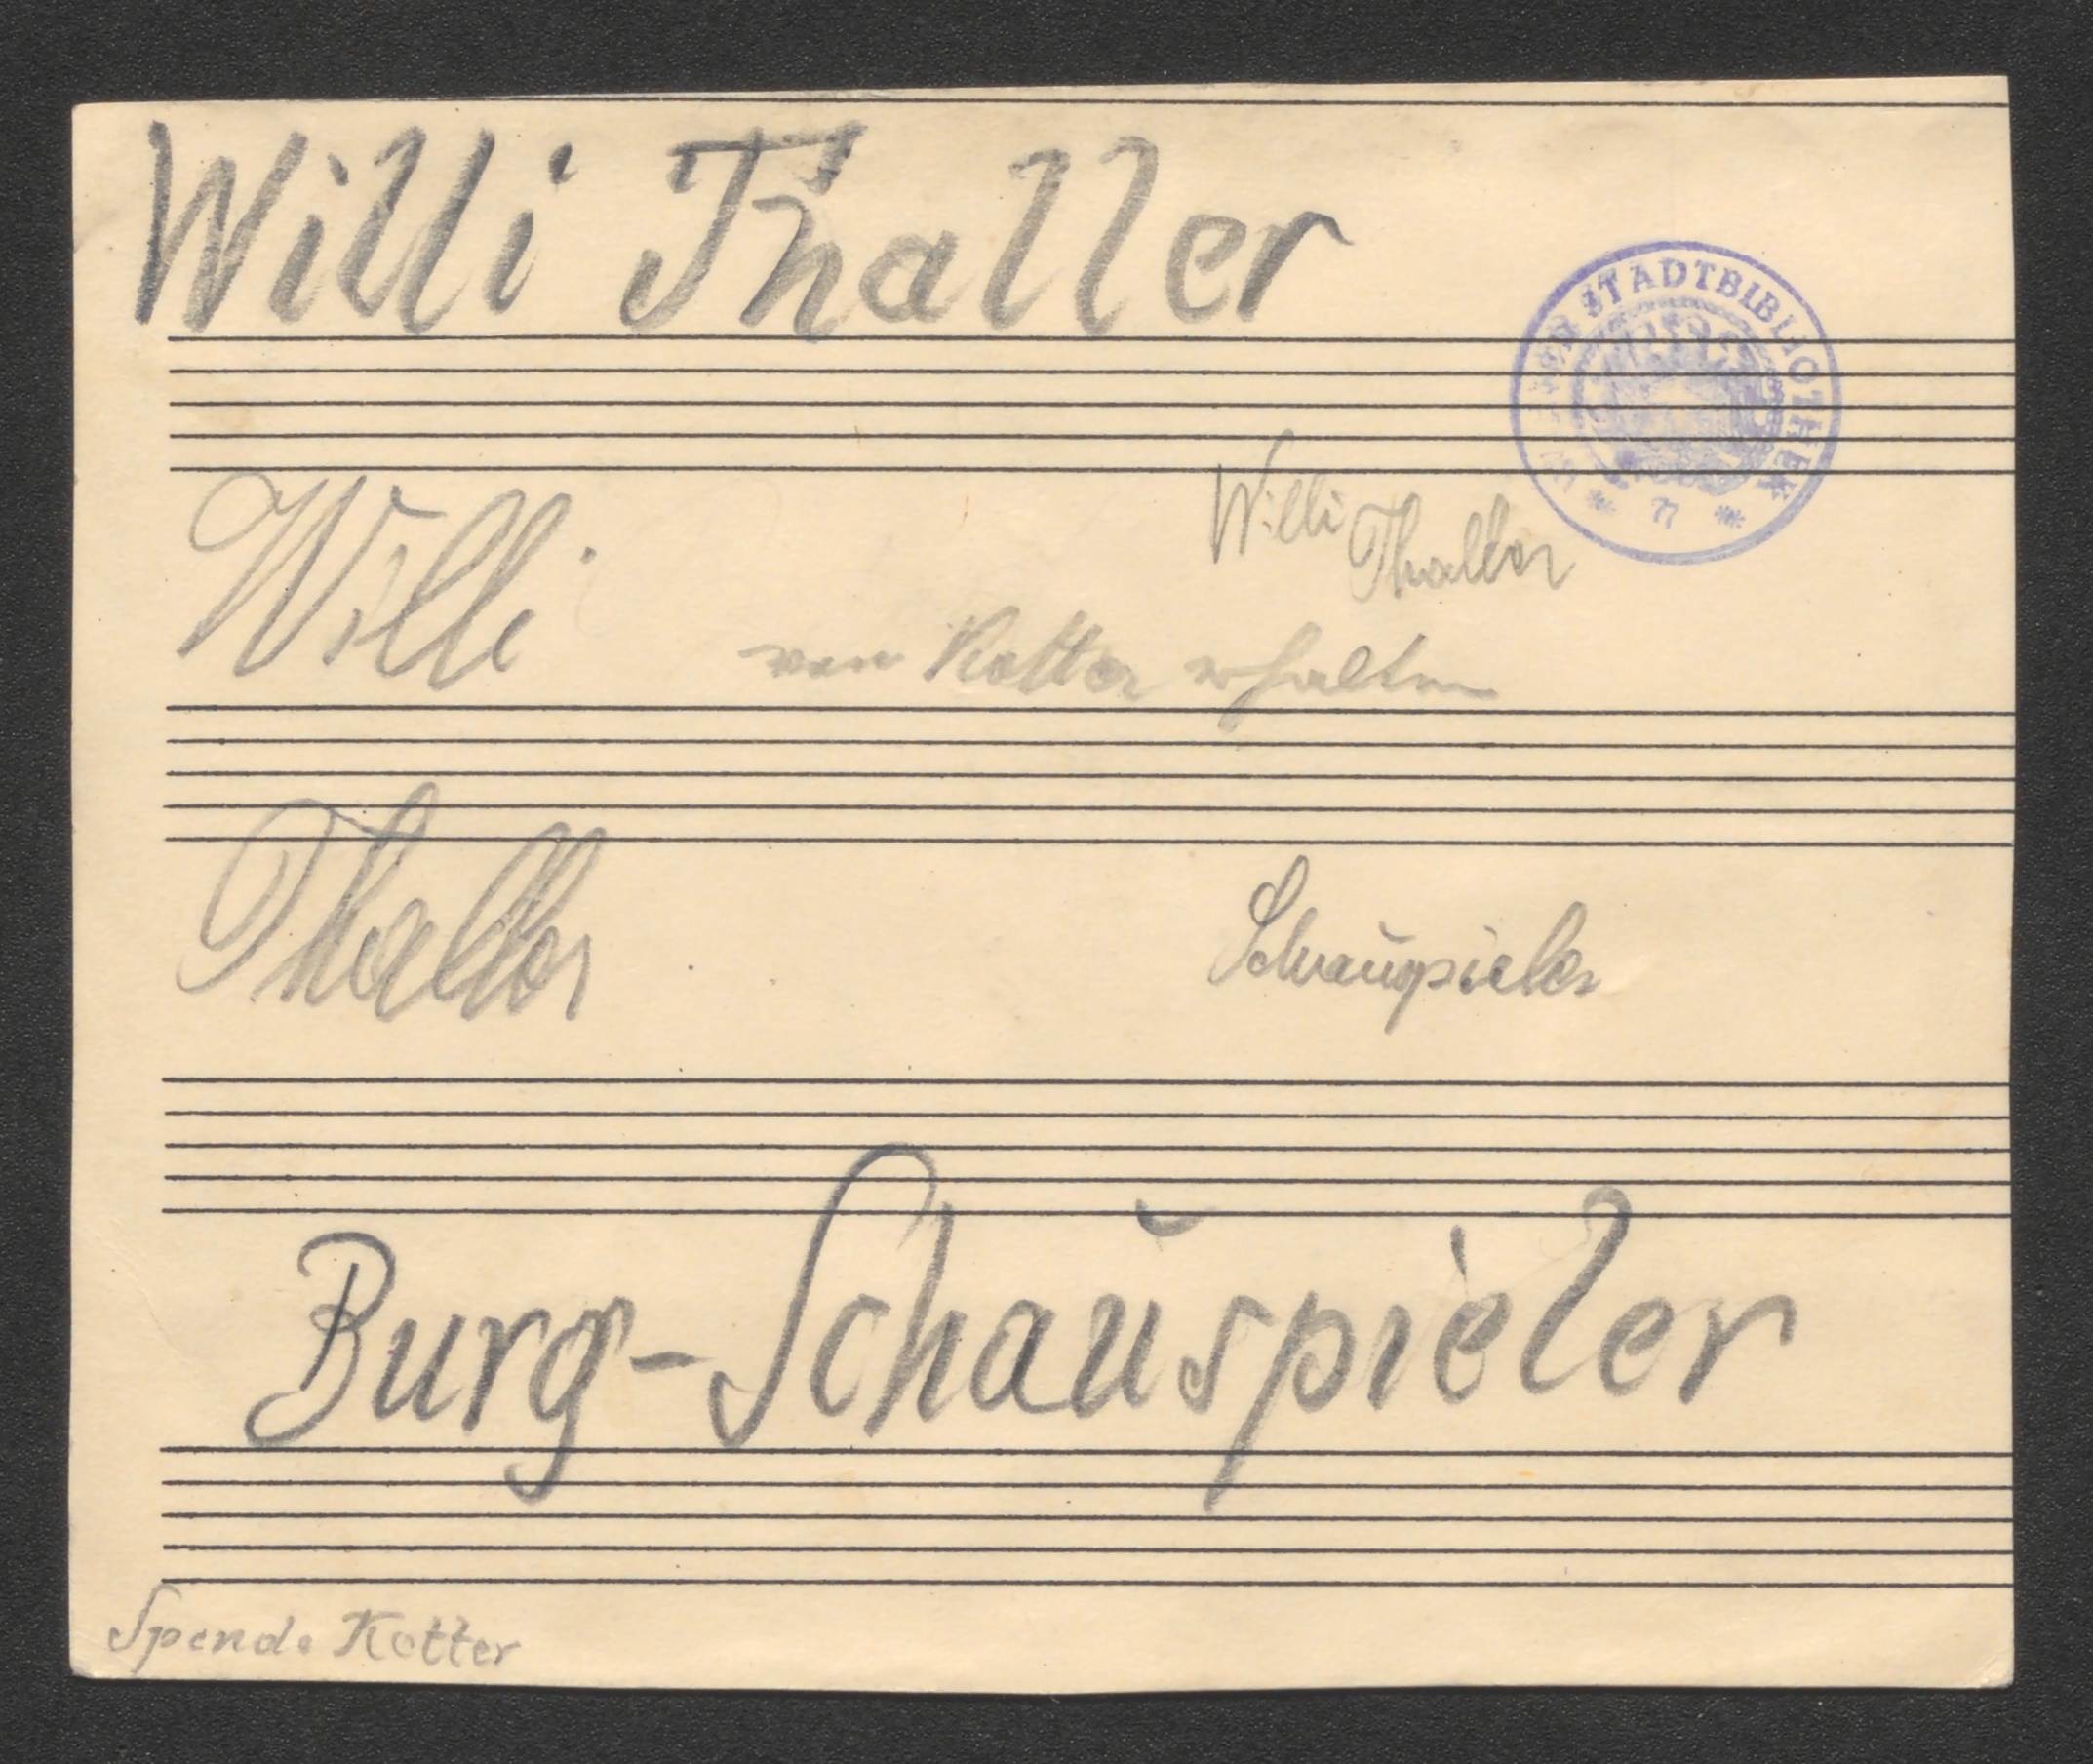 Willi Thaller
WIENER STADTBIBLIOTHEK
Willi
Willi
Thaller
von Kotter erhalten
Thaller
Schauspieler
Burg-Schauspieler
Spende Kotter